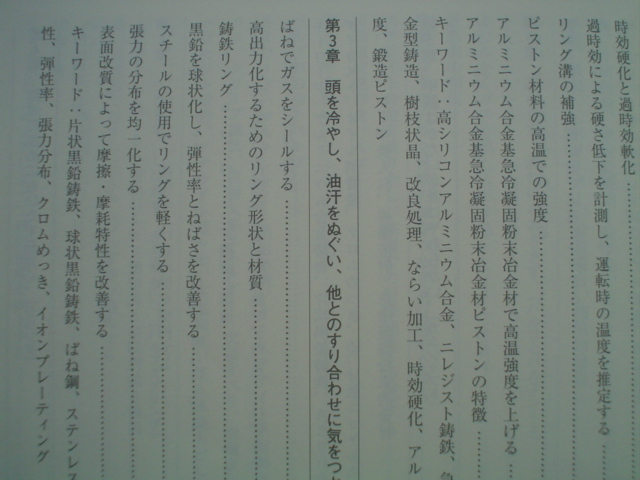 時効硬化と過時効軟化
過時効による硬さ低下を計測し、運転時の温度を推定する
リング溝の補強
ピストン材料の高温での強度
アルミニウム合金基急冷凝固粉末冶金材で高温強度を上げる
アルミニウム合金基急冷凝固粉末冶金材ピストンの特徴
キーワード:高シリコンアルミニウム合金、ニレジスト鋳鉄、急
金型鋳造、樹枝状晶、改良処理、ならい加工、時効硬化、アル
度、鍛造ピストン
第3章 頭を冷やし、油汗をぬぐい、他とのすり合わせに気をつか
ばねでガスをシールする
高出力化するためのリング形状と材質
鋳鉄リング
黒鉛を球状化し、弾性率とねばさを改善する
スチールの使用でリングを軽くする
張力の分布を均一化する
表面改質によって摩擦・摩耗特性を改善する
キーワード:片状黒鉛鋳鉄、球状黒鉛鋳鉄、ばね鋼、ステンレス
性、弾性率、張力分布、クロムめっき、イオンプレーティング